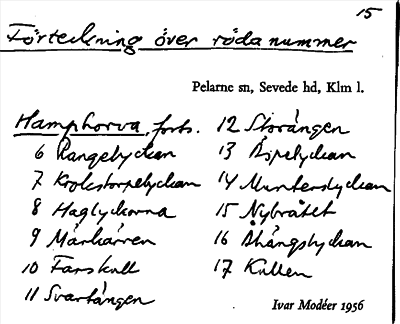 15
Förteckning över röda nummer
Pelarne sn, Sevede hd, Klm l.
Hamphorva, forts.
6 Rangelyckan
7 Krokstorpelyckan
8 Haglyckorna
9 Mårkärren
10 Farskull
11 Svartängen
12 Storängen
13 Äspelyckan
14 Munterslyckan
15 Nybråtet
16 Åhängslyckan
17 Kullen
Ivar Modéer 1956